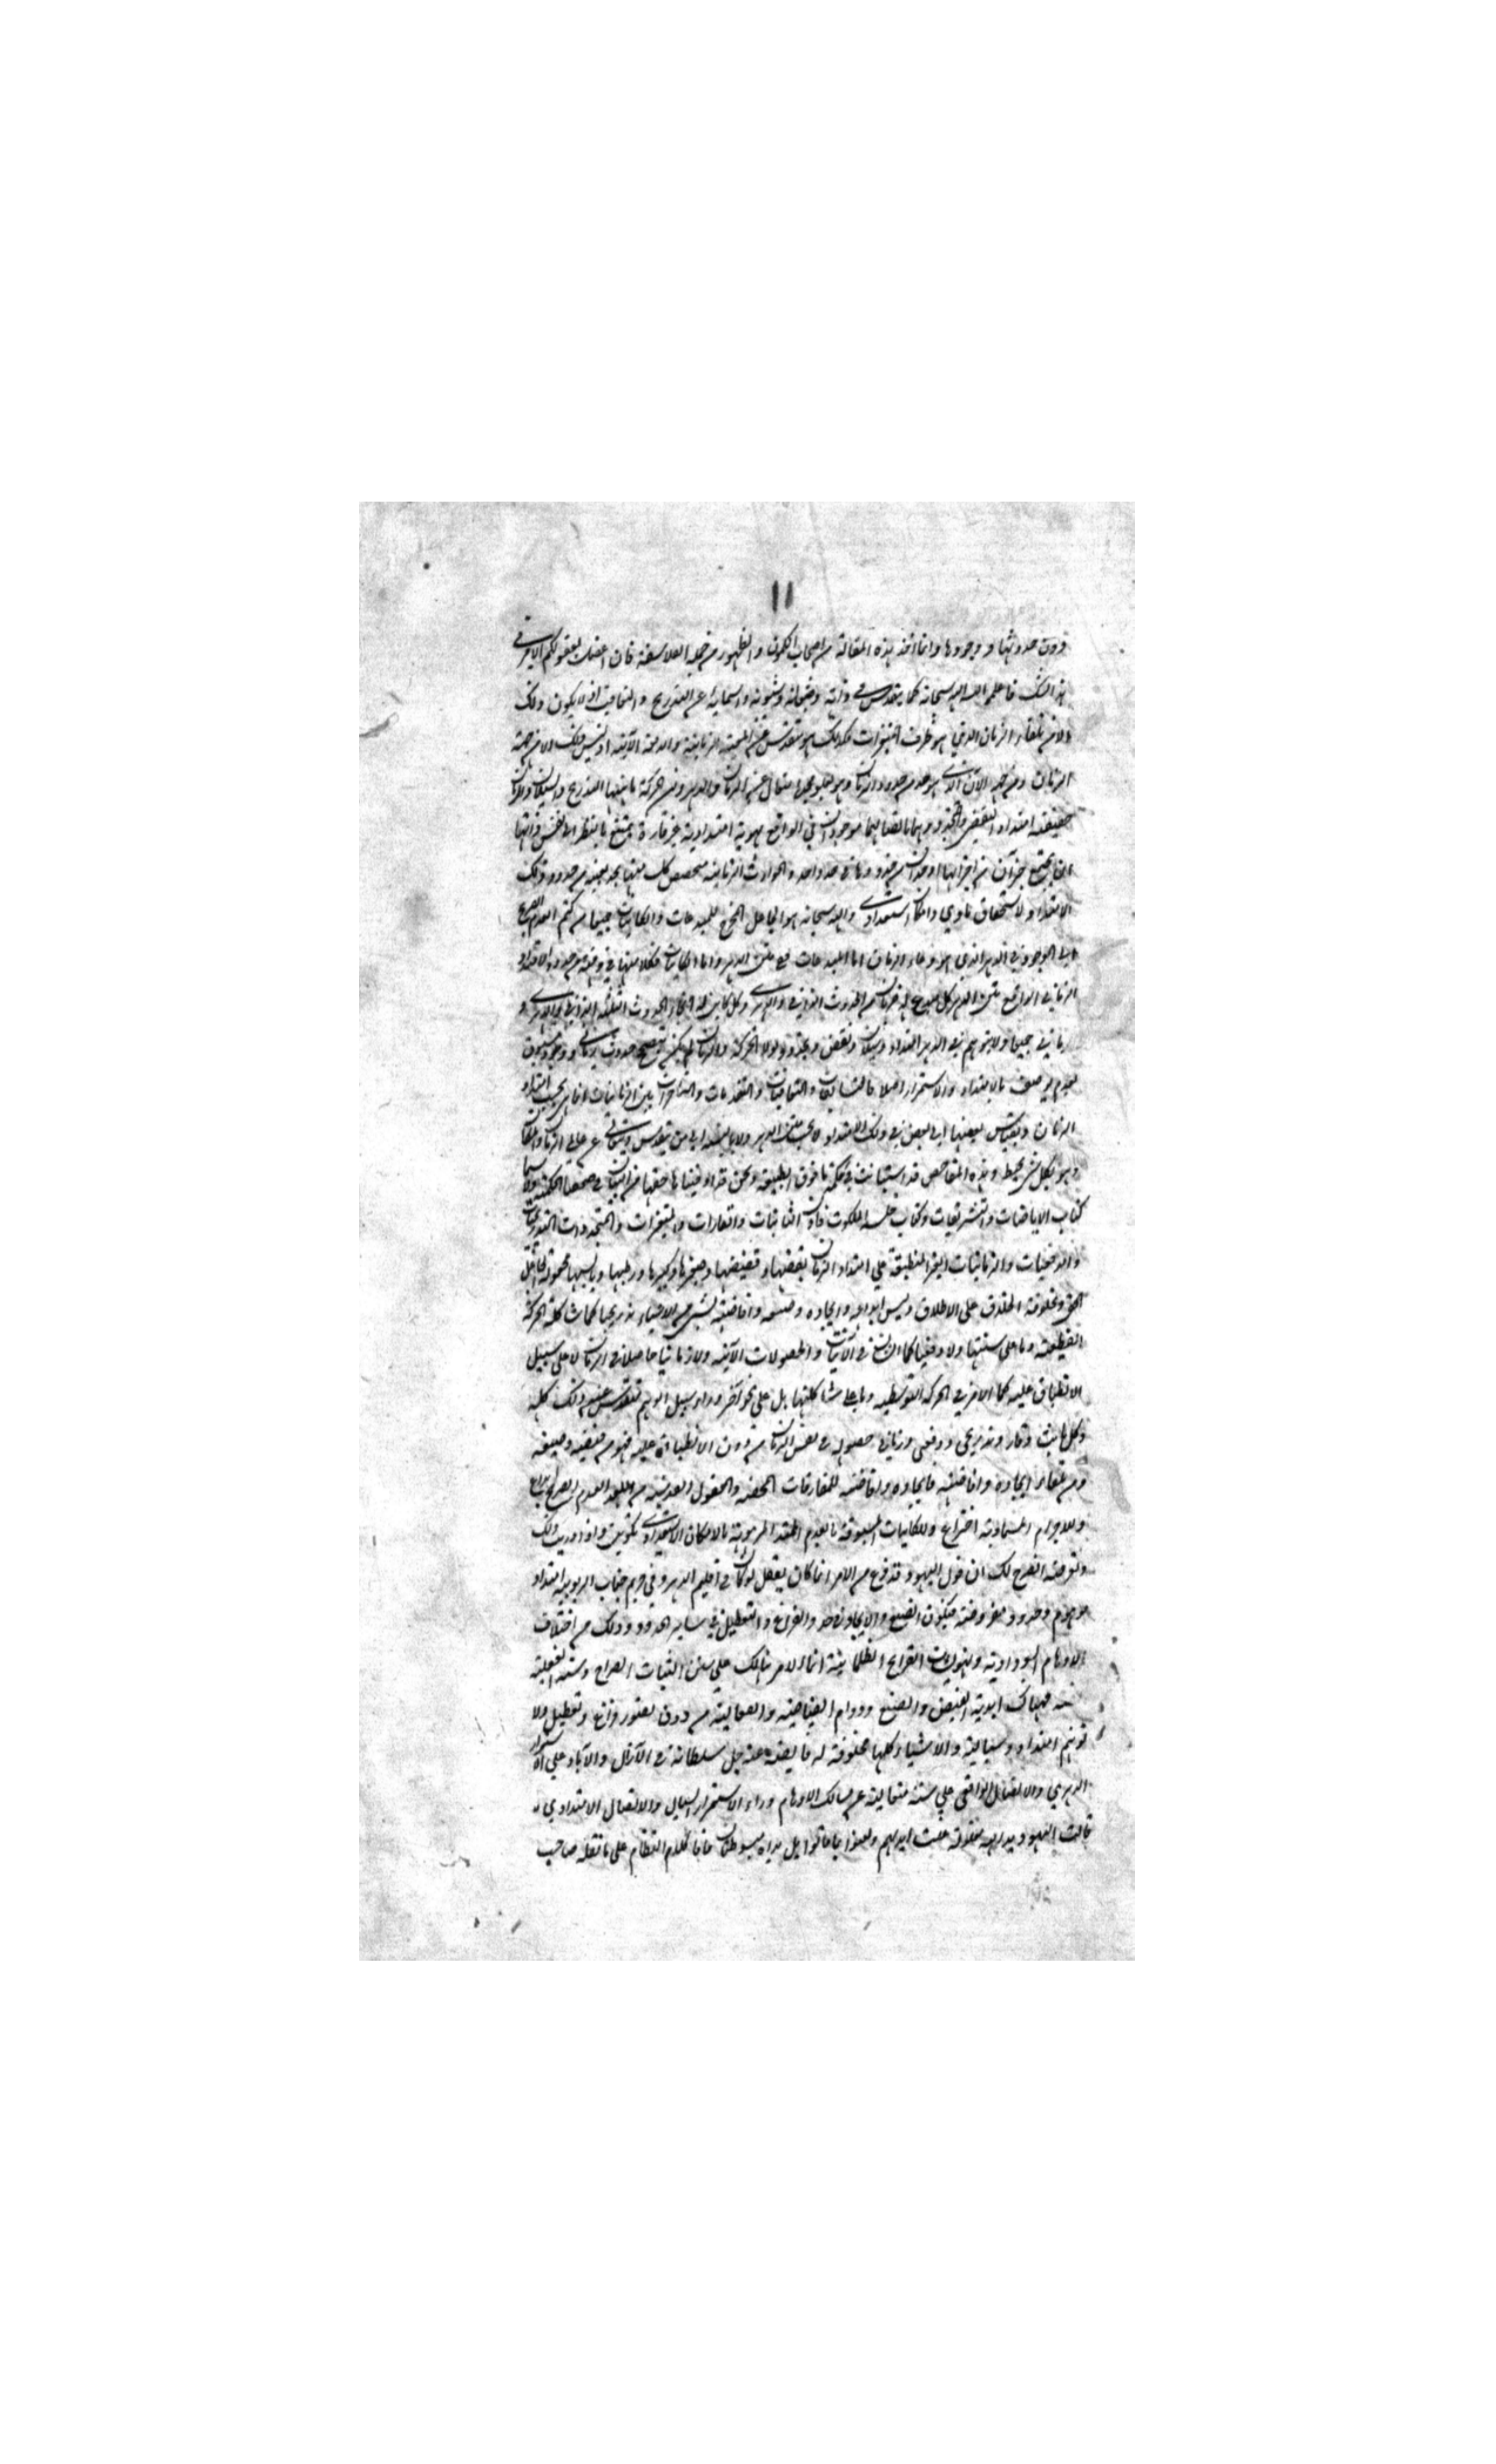 ١١
دون حدوثها و وجودها وانما اخذ هذه المقالة من اصحاب الكمون والظهور من جملة الفلاسفة فان اعضلت بعقولكم الامر في
هذا الشك فاعلمن ان الله سبحانه كما يتقدس في ذاته وصفاته وشئونه واسمائه عن التدريج والتعاقب اذ لا يكون ذلك
الا من تلقاء الزمان الذي هو ظرف التغيرات فكذلك هو متقدس عن المعية الزمانية والدفعة الآنية اذ ليس ذلك الا من جهة
الزمان ومن جهة الآن الذي هو حد من حدود الزمان وهو بعلو مجده متعال عن الزمان والدهر ومن الحركة ما بنتها التدريج والسيلان والزمان
حقيقته امتداد التقضي والتجدد وهما باتصالهما موجودان في الواقع بهوية امتدادية غير قارة يمتنع بالنظر الى نفس ذاتها
ان يجتمع جزآن من اجزائها او حدان من حدودها في حد واحد والحوادث الزمانية متخصص كل منها بحد بعينه من حدود ذلك
الامتداد لاستحقاق مادي وامكان استعدادي والله سبحانه هو الجاعل المخرج للمبدعات والكائنات جميعا من كتم العدم الصريح
الى الوجود في الدهر الذي هو وعاء الزمان اما المبدعات ففي متن الدهر واما الكائنات فكلا منها في وقته من حدود الامتداد
الزماني الواقع متن الدهر كل مبدع له ضربان من الحدوث الذاتي والدهري وكل كائن فله انحاء الحدوث الثلثة الذاتي والدهري و
الزماني جميعا ولا يتوهم في الدهر امتداد وسيلان وتقض وتجدد ولولا الحركة والزمان لم يكن يتصحح حدوث زماني ووجود مسبوق
بعدم يوصف بالامتداد والاستمرار اصلا فالتسابقات والتعاقبات والتقدمات والتأخرات بين الزمانيات انما هي بحسب امتداد
الزمان وبقياس بعضها الى بعض في ذلك الامتداد لا بحسب متن الدهر ولا بالنسبة الى من يتقدس ويتعالى عن عالمي الزمان والمكان
وهو بكل شيء محيط وهذه المفاحص قد استبانت في حكمة ما فوق الطبيعة ونحن قد اوفيناها حقها من البيان في صحفنا الحكمية ولا سيما
كتاب الايماضات والتشريقات وكتاب خلسة الملكوت فاذن الثابتات والقارات والمتغيرات والمتجددات التدريجيات
والدفعيات والزمانيات الغير المنطبقة على امتداد الزمان بقضها وقضيضها وصغيرها وكبيرها ورطبها ويابسها مجعولة الجاعل
الحق ومخلوقة الخلاق على الاطلاق وليس ابداعه وايجاده وصنعه وافاضته لشيء من الاشياء تدريجيا كما شاكلة الحركة
القطعية وما على سنتها ولا دفعيا كما الشأن في الآنيات والحصولات الآنية ولا زمانيا حاصلا في الزمان لا على سبيل
الانطباق عليه كما الامر في الحركة التوسطية وما على شاكلتها بل على نحو آخر وراء سبيل الوهم متقدس عن ذلك كله
وكل ثابت وقار وتدريجي ودفعي وزماني حصوله في نفس الزمان من دون الانطباق عليه فهو من فيضه وصنيعه
ومن تلقاء ايجاده وافاضته فايجاده وافاضته للمفارقات المحضة والعقول القدسية من العدم الصريح ابداع
وللاجرام السماوية اختراع وللكائنات المسبوقة بالعدم الممتد المرهونة بالامكان الاستعدادي تكوين واذا دريت ذلك
وتعرفته انصرح لك ان قول اليهود قد فرغ من الامر انما كان يعقل لو كان في اقليم الدهر وفي حريم جناب الربوبية امتداد
موهوم وحدود مفروضة فيكون الصنع والايجاد في حد والفراغ والتعطيل في ساير الحدود وذلك من اختلاق
الاوهام السوداوية وتهويلات القرايح الظلمانية انما الامر هنالك على سنن الثبات الصراح وسنة الفعلية
فهناك ابدية الفيض والصنع ودوام الفياضية والفعالية من دون تصور فراغ وتعطيل ولا
توهم امتداد وسيالية والاشياء كلها مخلوقة له فايضة عنه جل سلطانه في الآزال والآباد على الاستمرار
الدهري والاتصال الواقعي على سنة متعالية عن مسالك الاوهام وراء الاستمرار السيال والاتصال الامتدادي
قالت اليهود يد الله مغلولة غلت ايديهم ولعنوا بما قالوا بل يداه مبسوطتان فاما كلام النظام على ما نقله صاحب